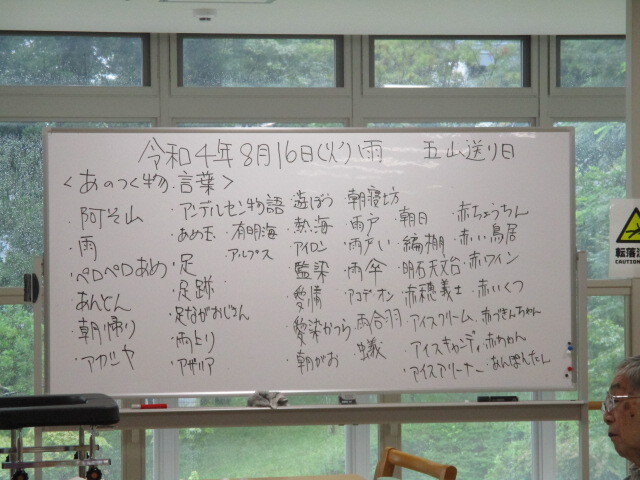 令和4年8月16日(火)雨 五山送り日
<あのつく物・言葉>
・阿そ山
・雨
・ペロペロあめ
・あんどん
・朝帰り
・アカシヤ
・アンデルセン物語
・あめ玉 ・有明海
・アルプス
・足
・足跡
・足ながおじさん
・雨とり
・アザリア
・遊ぼう
・熱海
・アイロン
・藍染
・愛情
・愛染かつら
・朝がお
・朝寝坊
・雨戸
・雨どい
・雨傘
・アコデオン
・雨合羽
・蟻
・朝日
・編棚
・明石天文台
・赤穂義士
・アイスクリーム
・アイスキャンディ
・赤ちょうちん
・赤い鳥居
・赤ワイン
・赤いくつ
・赤づきんちゃん
・赤ちゃん
・あんぽんたん
転落注
CAUTION